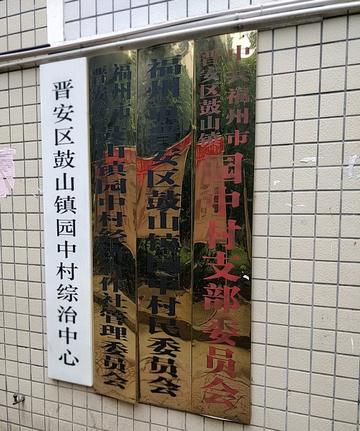 中共福州市
晋安区鼓山镇
园中村支部委员会
福州市晋安区鼓山镇园中村村民委员会
福州市
晋安区鼓山镇园中村经济合作社管理委员会
晋安区鼓山镇园中村综治中心